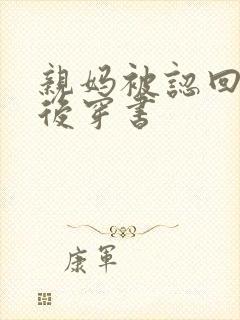 親媽被認回
後穿書
康軍